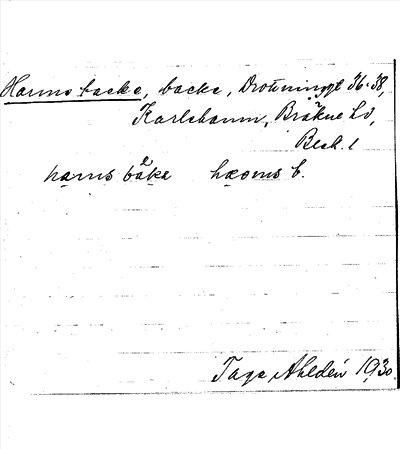 Harms backe, backe, Drottninggt 36-38,
Karlshamn, Bräkne hd,
Blek. l
harms bake
Tage Ahldén 1930.